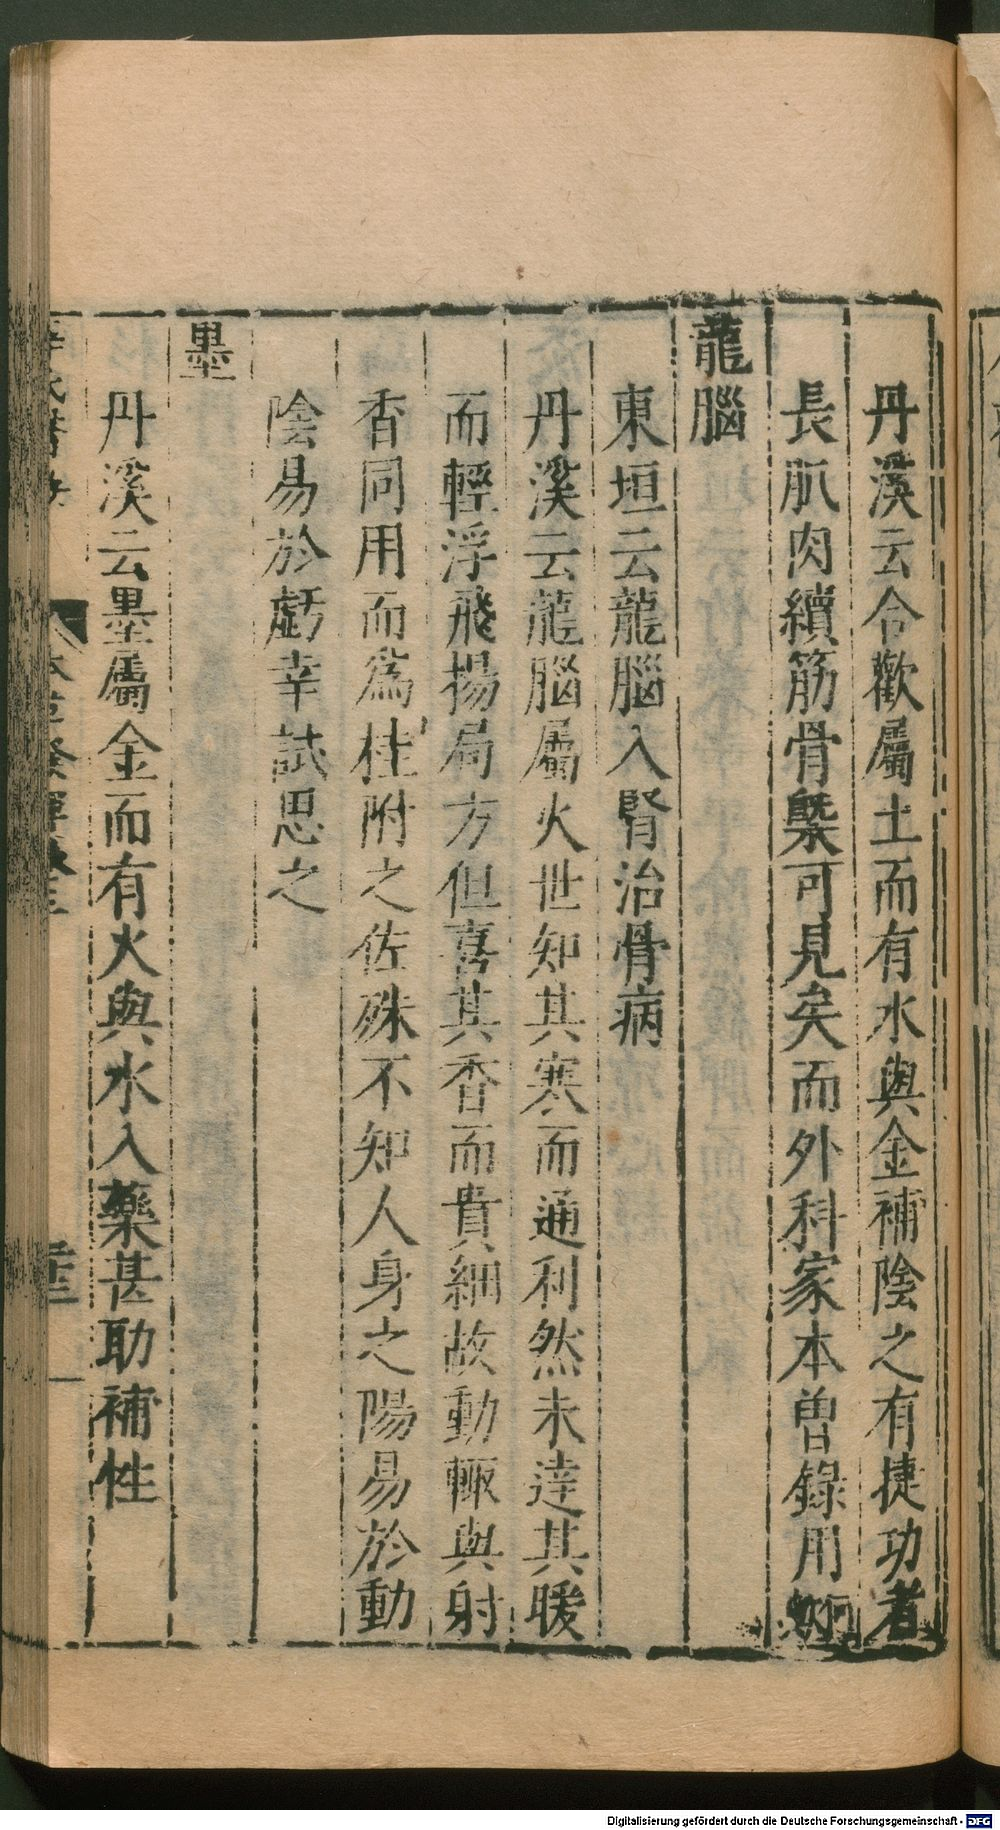 丹溪云合歡屬土而有水與金補陰之有捷功者
長肌肉續筋骨槩可見矣而外科家本曽錄用何
龍腦
東垣云龍腦入腎治骨病
丹溪云龍腦屬火世知其寒而通利然未達其暖
而輕浮飛揚局方但喜其香而貴細故動輙與射
香同用而為桂附之佐殊不知人身之陽易於動
陰易於虧幸試思之
墨
丹溪云墨屬金而有火與水入藥甚助補性
本草發揮卷三
Digitalisierung gefördert durch die Deutsche Forschungsgemeinschaft - DFG